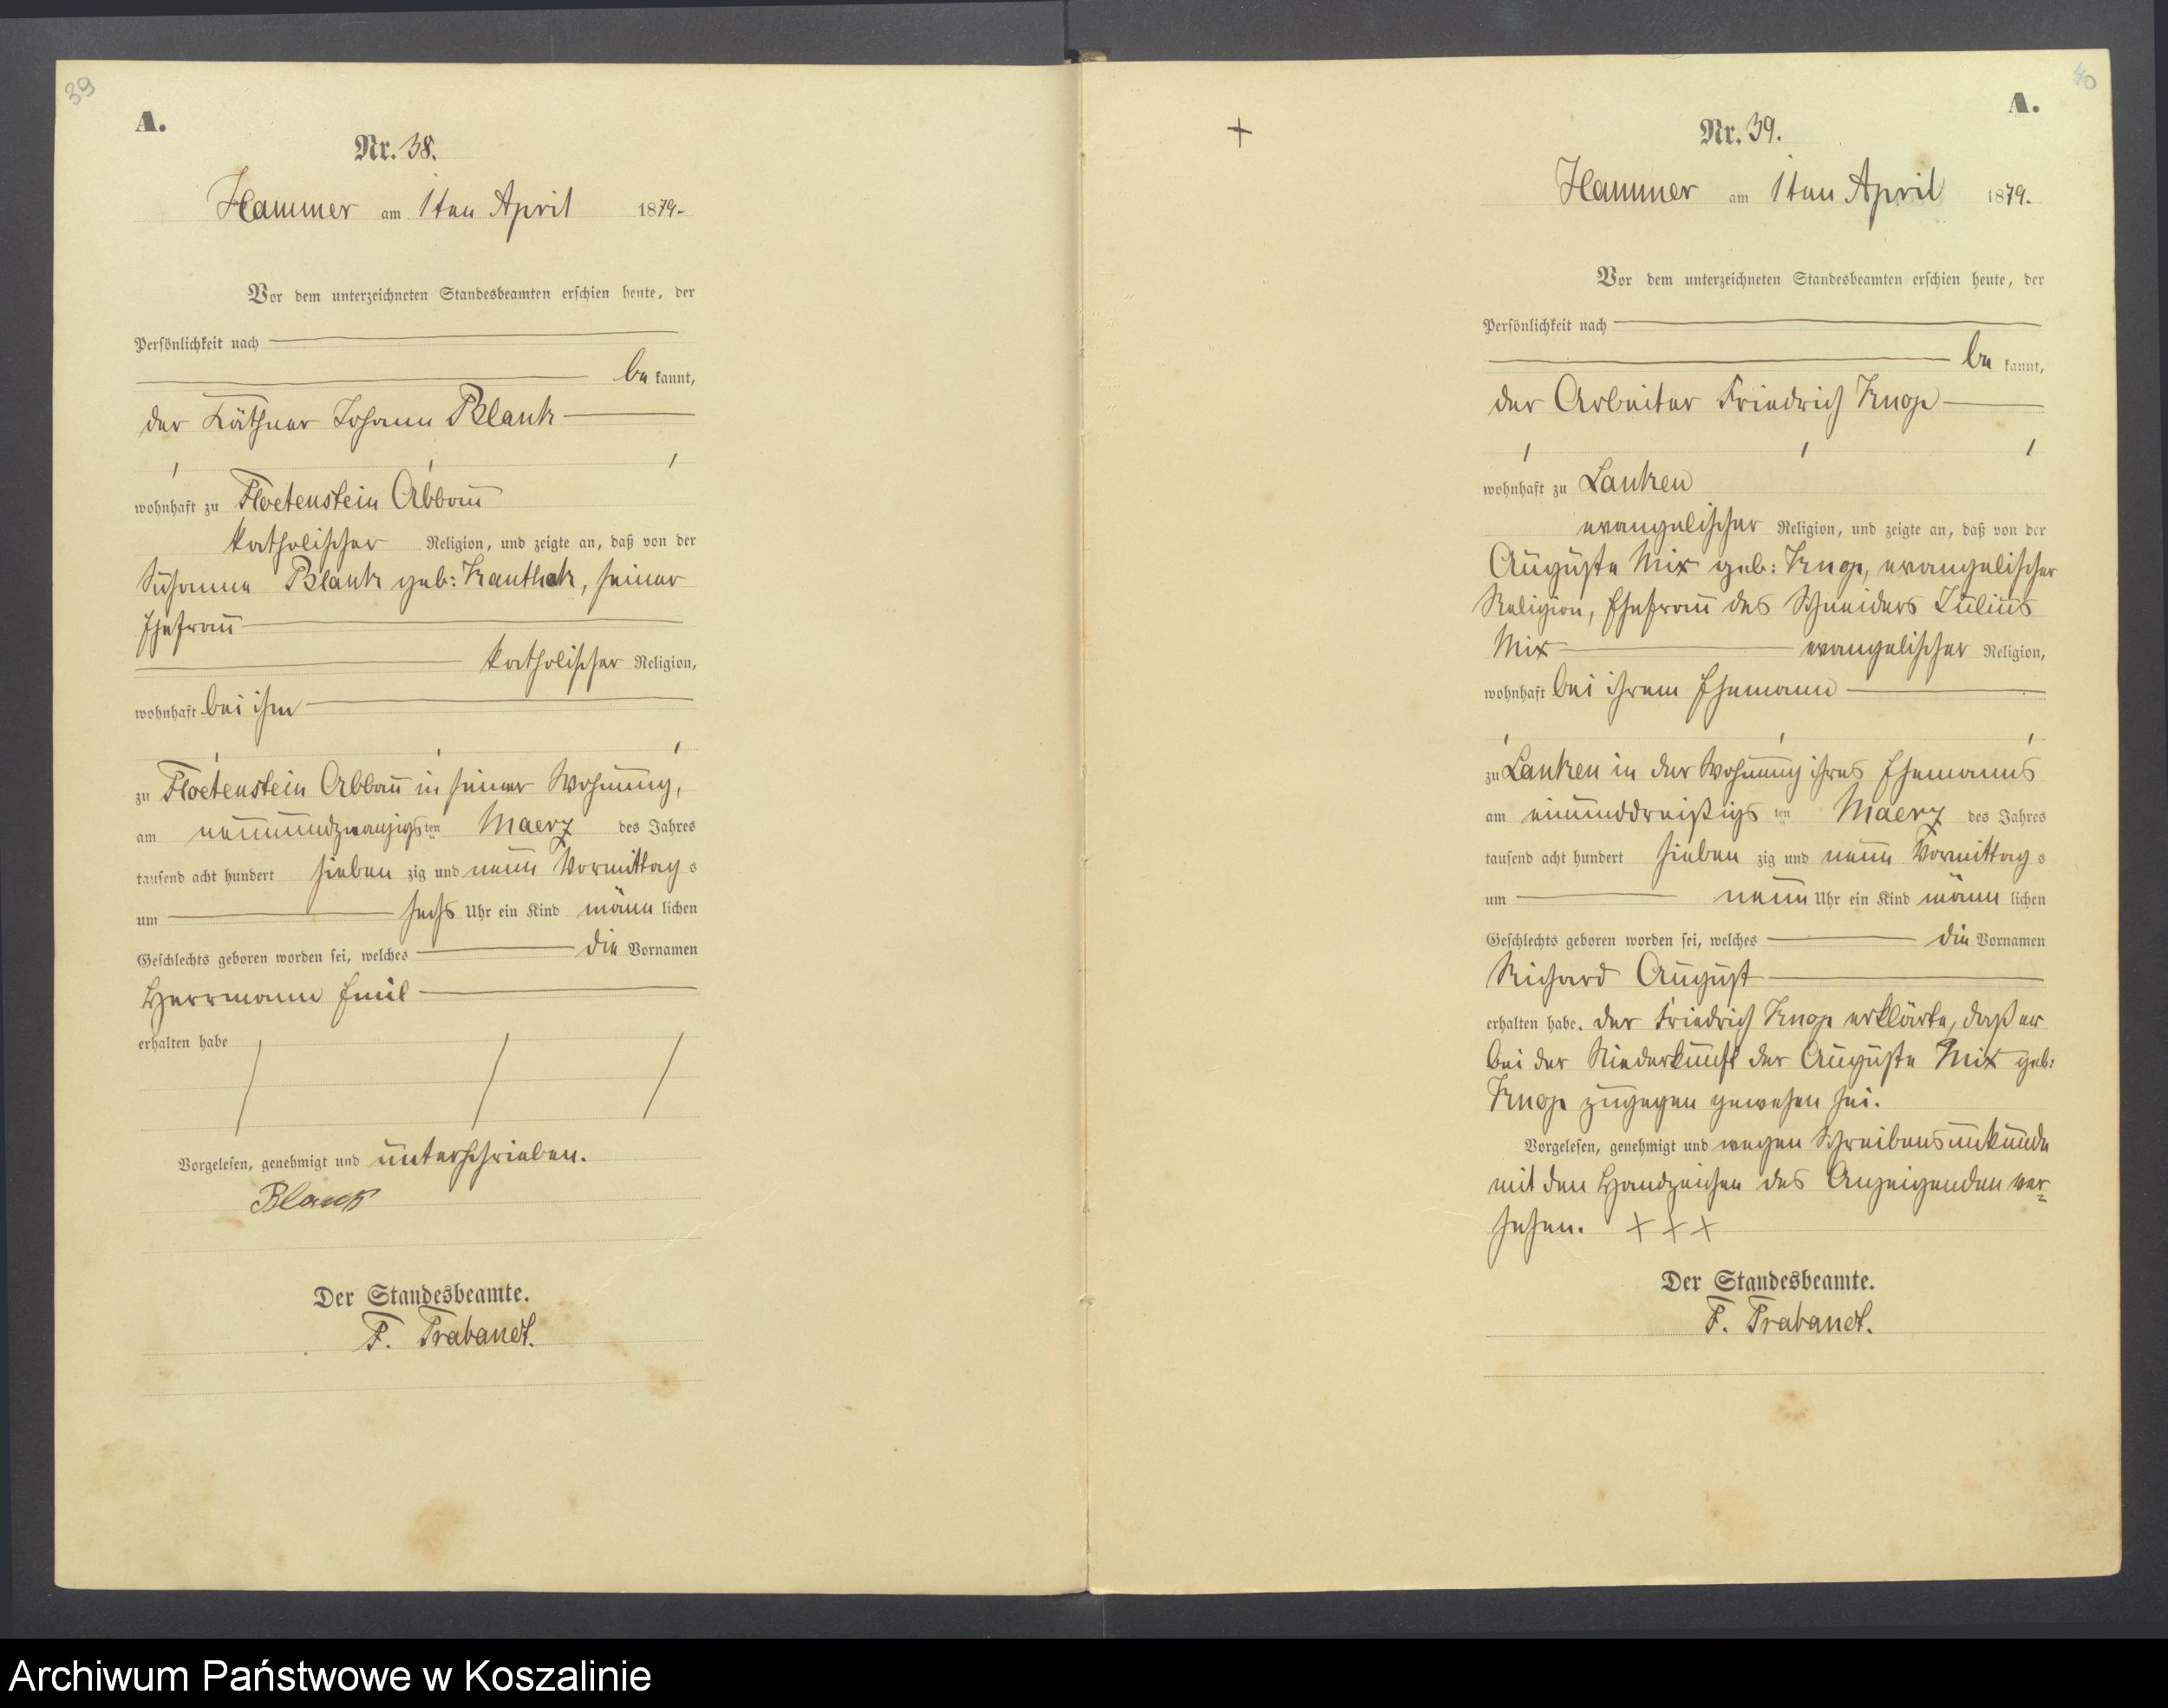 39
A.
Nr. 38.
Hammer am 1ten April 1879.
Vor dem unterzeichneten Standesbeamten erschien heute, der
Persönlichkeit nach
be kannt,
der Käthner Johann Blank
wohnhaft zu Floetenstein Abbau
katholischer Religion, und zeigte an, daß von der
Susanna Blank geb: Kanthak, seiner
Ehefrau
katholischer Religion,
wohnhaft bei ihm
zu Floetenstein Abbau in seiner Wohnung,
am neunundzwanzigsten Maerz des Jahres
tausend acht hundert sieben zig und neun Vormittag s
um sechs Uhr ein Kind männ lichen
Geschlechts geboren worden sei, welches die Vornamen
Herrmann Emil
erhalten habe
Vorgelesen, genehmigt und unterschrieben.
Blank
Der Standesbeamte.
F. Trabandt.
40
A.
+
Nr. 39.
Hammer am 1ten April 1879.
Vor dem unterzeichneten Standesbeamten erschien heute, der
Persönlichkeit nach
be kannt,
der Arbeiter Friedrich Knop
wohnhaft zu Lanken
evangelischer Religion, und zeigte an, daß von der
Auguste Mix geb: Knop, evangelischer
Religion, Ehefrau des Schneiders Julius
Mix evangelischer Religion,
wohnhaft bei ihrem Ehemann
zu Lanken in der Wohnung ihres Ehemanns
am einunddreißigs ten Maerz des Jahres
tausend acht hundert sieben zig und neun Vormittag s
um neun Uhr ein Kind männ lichen
Geschlechts geboren worden sei, welches die Vornamen
Richard August
erhalten habe. Der Friedrich Knop erklärte, daß er
bei der Niederkunft der Auguste Mix geb:
Knop zugegen gewesen sei.
Vorgelesen, genehmigt und wegen Schreibensunkunde
mit den Handzeichen des Anzeigenden ver=
sehen. + + +
Der Standesbeamte.
F. Trabandt.
Archiwum Państwowe w Koszalinie